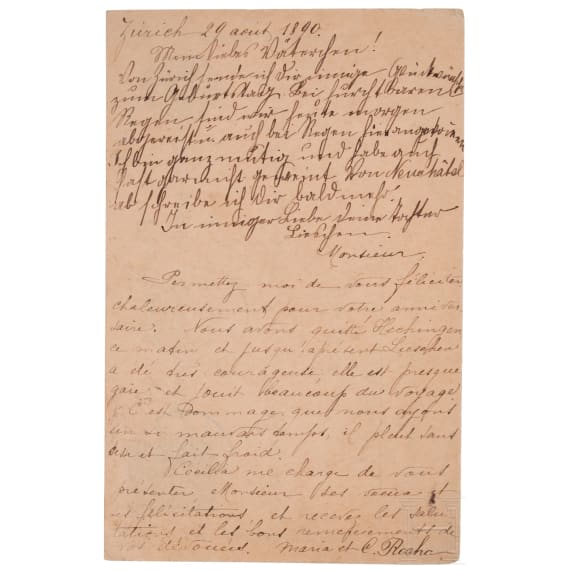 Zürich 29 août 1890.
Mein liebes Väterchen!
Von Zürich sende ich Dir innige Glückwünsche
zum Geburtstag. Bei furchtbarem
Regen sind wir heute morgen
abgereist u. auch bei Regen hier angekommen
Ich bin ganz mutig und habe auch
fast gar nicht geweint. Von Neuchâtel
ab schreibe ich Dir bald mehr.
In inniger Liebe Deine Tochter
Lieschen.
Monsieur,
Permettez moi de vous féliciter
chaleureusement pour votre anniver
saire. Nous avons quitté Hechingen
ce matin et jusqu'àprésent Lieschen
a été très courageuse elle est presque
gaie et jouit beaucoup du voyage
C'est dommage que nous ayons
un si mauvais temps, il pleut sans
et fait froid.
Cécilia me charge de vous
présenter, Monsieur ses voeux et
ses félicitations et recevez les salu
tations et les bons remerciements de
vos dévouées. Maria et C. Roche